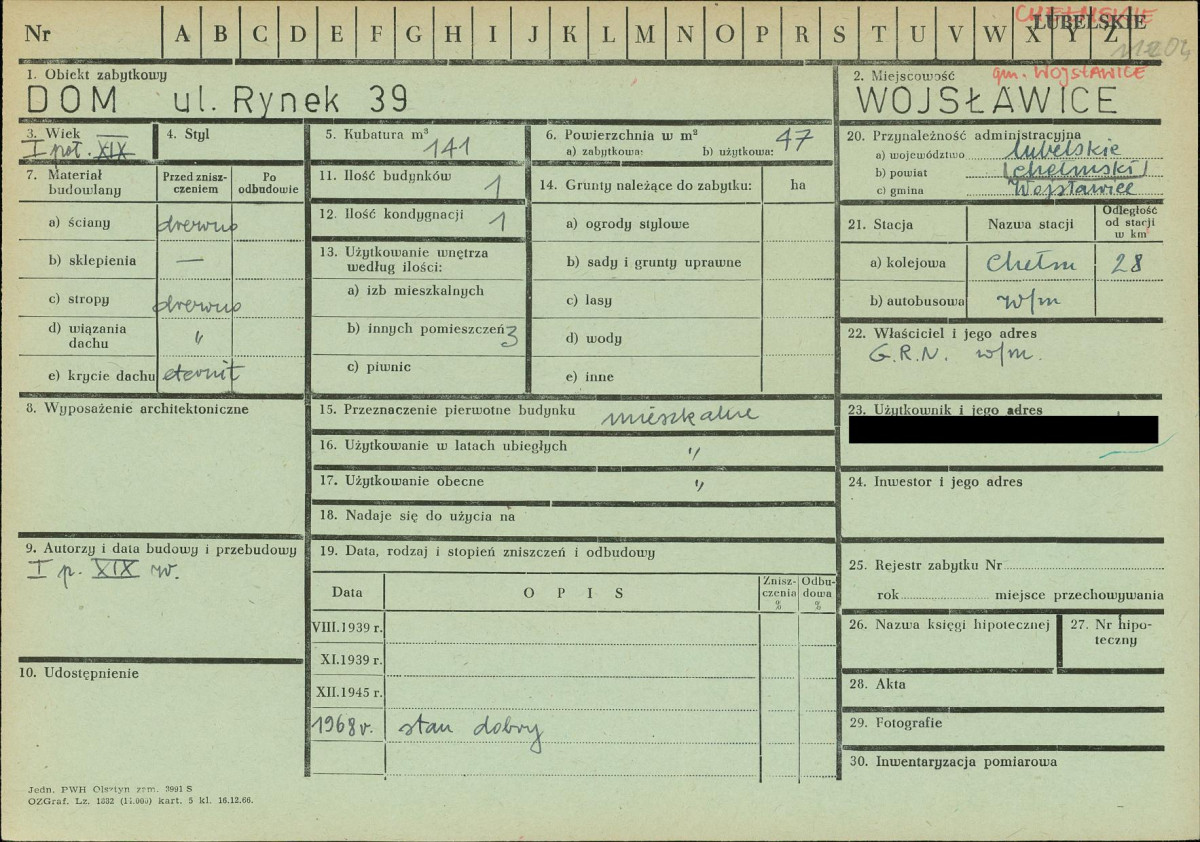 CHEŁMSKIE
LUBELSKIE
Nr A B C D E F G H I J K L M N O P R S T U V W X Y Z
1. Obiekt zabytkowy
DOM ul. Rynek 39
2. Miejscowość gm. WOJSŁAWICE
WOJSŁAWICE
3. Wiek
I poł. XIX
4. Styl
5. Kubatura m³
141
6. Powierzchnia w m²
a) zabytkowa: b) użytkowa: 47
7. Materiał budowlany
Przed zniszczeniem
Po odbudowie
a) ściany drewno
b) sklepienia —
c) stropy drewno
d) wiązania dachu "
e) krycie dachu eternit
8. Wyposażenie architektoniczne
9. Autorzy i data budowy i przebudowy
I p. XIX w.
10. Udostępnienie
11. Ilość budynków 1
12. Ilość kondygnacji 1
13. Użytkowanie wnętrza
według ilości:
a) izb mieszkalnych
b) innych pomieszczeń 3
c) piwnic
14. Grunty należące do zabytku: ha
a) ogrody stylowe
b) sady i grunty uprawne
c) lasy
d) wody
e) inne
15. Przeznaczenie pierwotne budynku mieszkalne
16. Użytkowanie w latach ubiegłych "
17. Użytkowanie obecne "
18. Nadaje się do użycia na
19. Data, rodzaj i stopień zniszczeń i odbudowy
Data OPIS Zniszczenia % Odbudowa %
VIII.1939 r.
XI.1939 r.
XII.1945 r.
1968 r. stan dobry
20. Przynależność administracyjna
a) województwo lubelskie
b) powiat (chełmski)
c) gmina Wojsławice
21. Stacja Nazwa stacji Odległość od stacji w km
a) kolejowa Chełm 28
b) autobusowa w/m
22. Właściciel i jego adres
G.R.N. w/m.
23. Użytkownik i jego adres
24. Inwestor i jego adres
25. Rejestr zabytku Nr
rok miejsce przechowywania
26. Nazwa księgi hipotecznej
27. Nr hipoteczny
28. Akta
29. Fotografie
30. Inwentaryzacja pomiarowa
Jedn. PWH Olsztyn zam. 3991 S
OZGraf. Lz. 1832 (14.000) kart. 5 kl. 16.12.66.